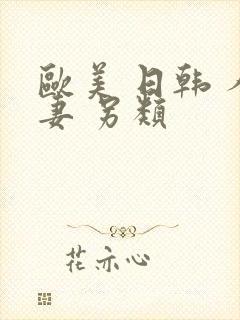 歐美日韩人
妻另類
花亦心